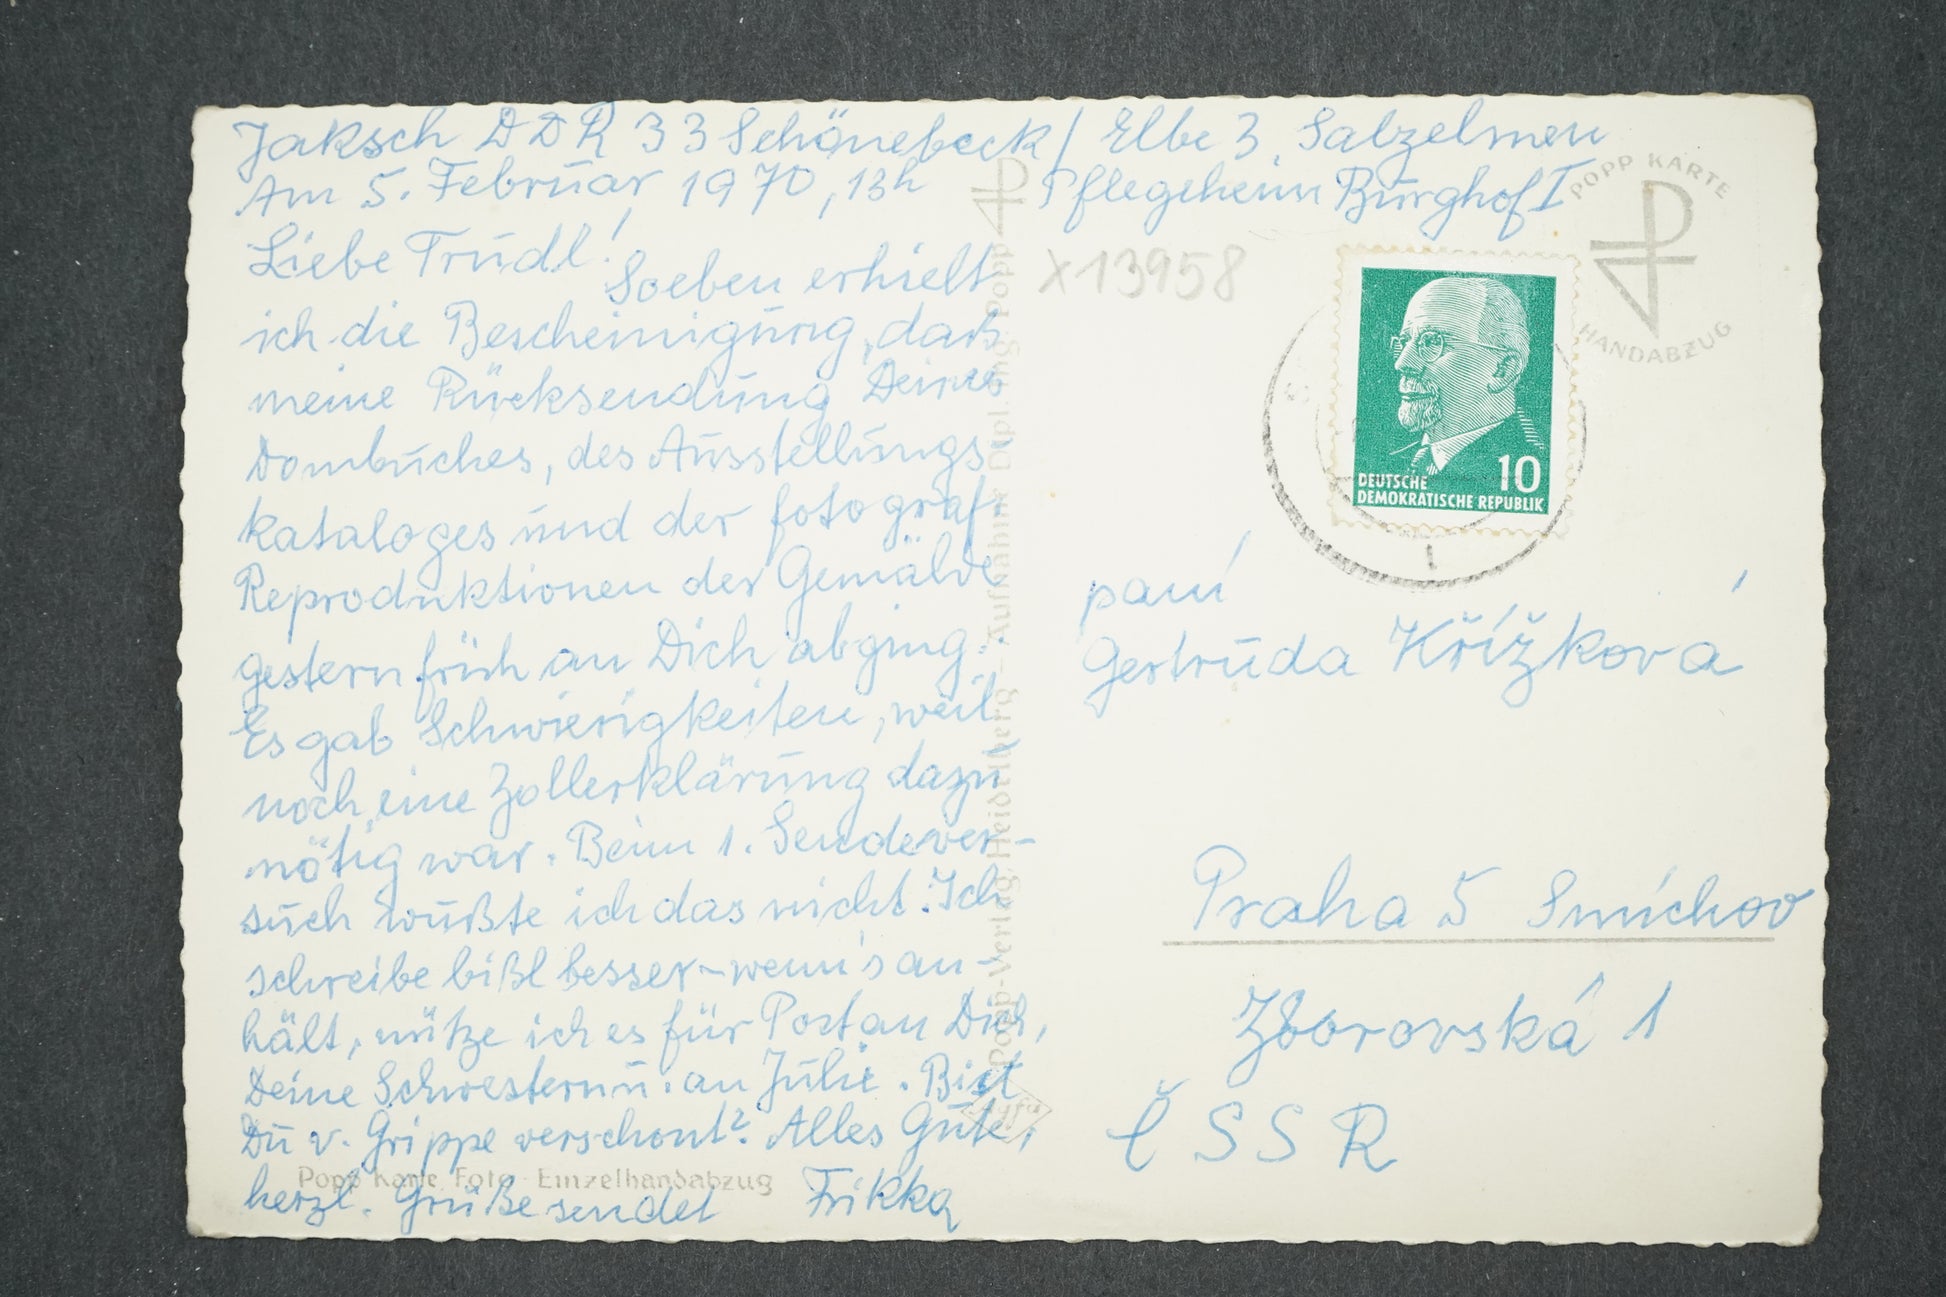 Jaksch DDR 33 Schönebeck / Elbe 3, Salzelmen
Am 5. Februar 1970, 13h Pflegeheim Burghof I
Liebe Trudl!
Soeben erhielt
ich die Bescheinigung, daß
meine Rücksendung Deines
Dombuches, des Ausstellungs
kataloges und der fotograf.
Reproduktionen der Gemälde
gestern früh an Dich abging.
Es gab Schwierigkeiten, weil
noch eine Zollerklärung dazu
nötig war. Beim 1. Sendever-
such wußte ich das nicht. Ich
schreibe bißl besser – wenn's an-
hält, nütze ich es für Post an Dich,
Deine Schwestern u. an Julie. Bist
Du v. Grippe verschont? Alles Gute,
herzl. Grüße sendet Frikka
X13958
POPP KARTE
HANDABZUG
10
DEUTSCHE
DEMOKRATISCHE REPUBLIK
paní
Gertruda Křížková
Praha 5 Smíchov
Zborovská 1
ČSSR
Popp-Verlag, Heidelberg – Aufnahme Dipl. Ing. Popp
Agfa
Popp Karte Foto-Einzelhandabzug